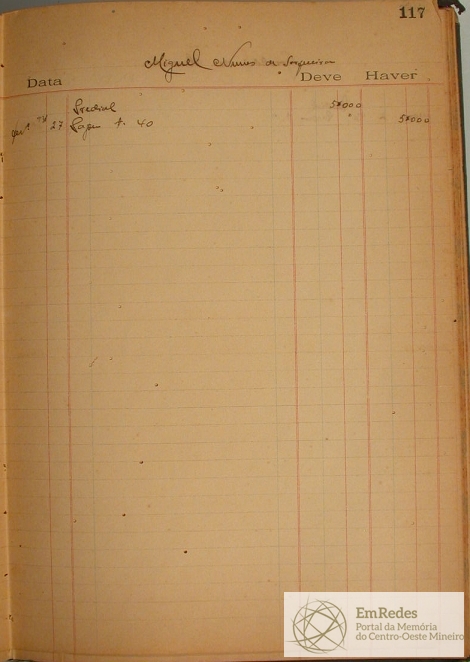 117
Miguel Nunes de
Data Deve Haver
Predial 5$000
27 Pagou f. 40 5$000
EmRedes
Portal da Memória
do Centro-Oeste Mineiro